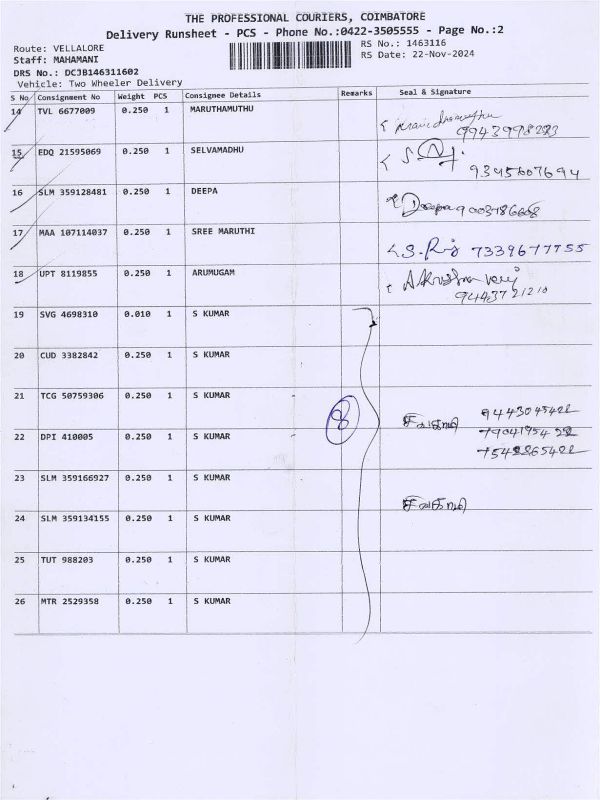 THE PROFESSIONAL COURIERS, COIMBATORE
Delivery Runsheet - PCS - Phone No.:0422-3505555 - Page No.:2
Route: VELLALORE
RS No.: 1463116
Staff: MAHAMANI
RS Date: 22-Nov-2024
DRS No.: DCJB146311602
Vehicle: Two Wheeler Delivery
S No Consignment No Weight PCS Consignee Details Remarks Seal & Signature
14 TVL 6677009 0.250 1 MARUTHAMUTHU
15 EDQ 21595069 0.250 1 SELVAMADHU
9345607694
16 SLM 359128481 0.250 1 DEEPA
Deepa
17 MAA 107114037 0.250 1 SREE MARUTHI
7339677755
18 UPT 8119855 0.250 1 ARUMUGAM
19 SVG 4698310 0.010 1 S KUMAR
20 CUD 3382842 0.250 1 S KUMAR
21 TCG 50759306 0.250 1 S KUMAR
8
9443045422
22 DPI 410005 0.250 1 S KUMAR
23 SLM 359166927 0.250 1 S KUMAR
24 SLM 359134155 0.250 1 S KUMAR
25 TUT 988203 0.250 1 S KUMAR
26 MTR 2529358 0.250 1 S KUMAR